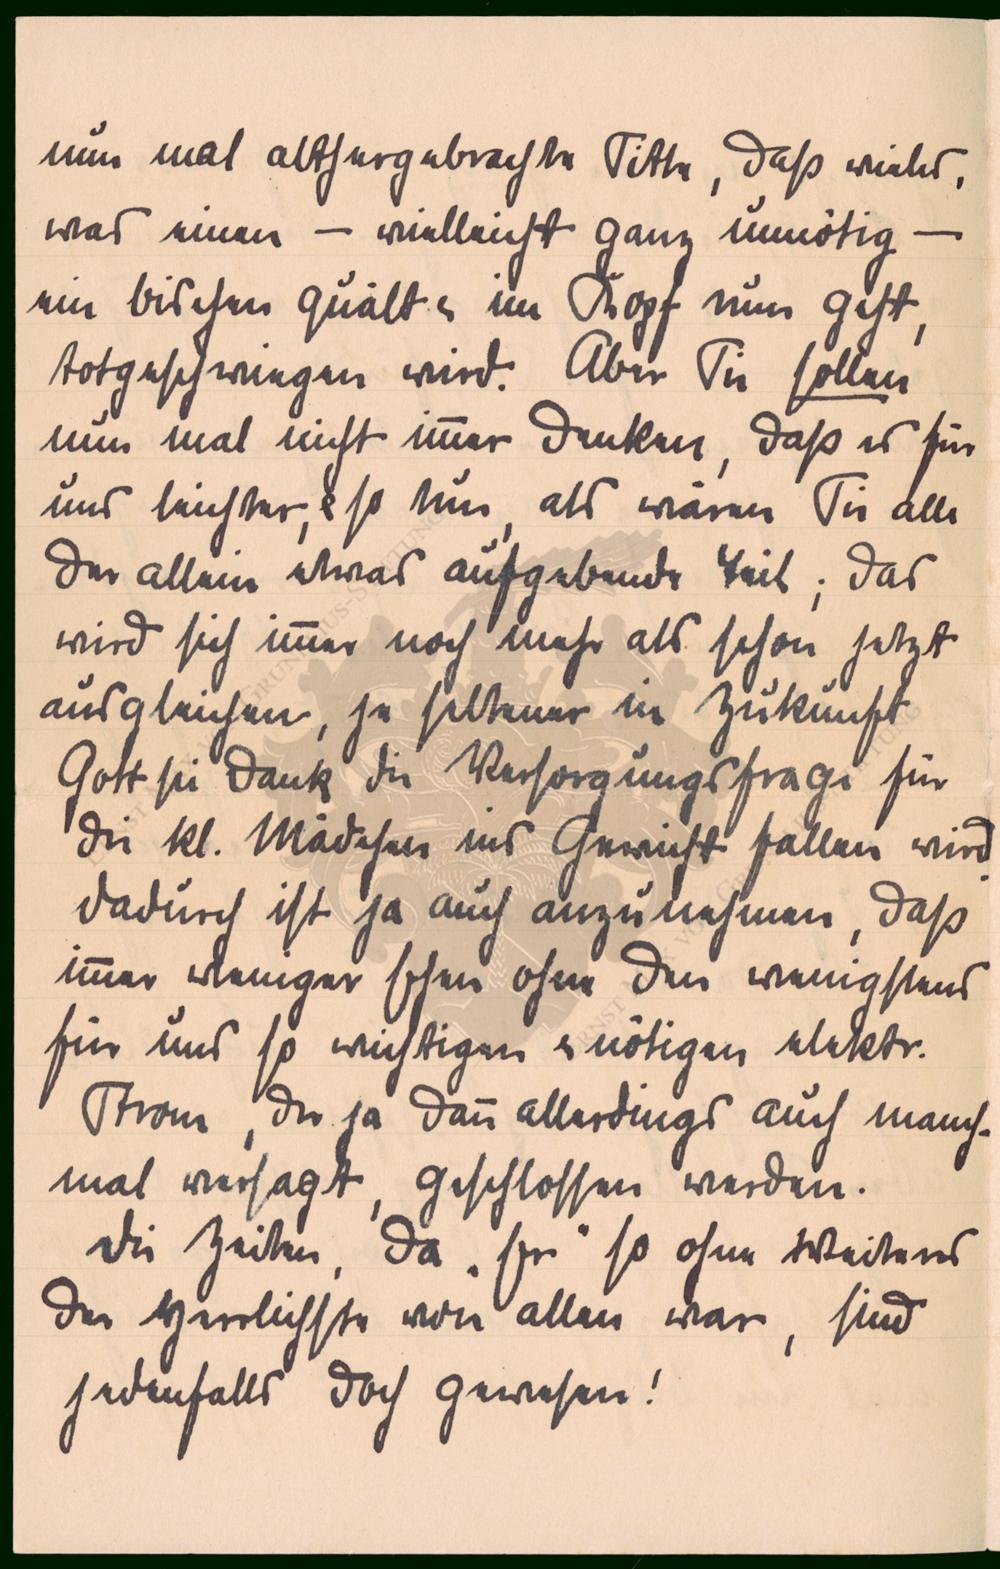 nun mal althergebrachte Sitte, daß vieles,
was einen – vielleicht ganz unnötig –
ein bischen quält & im Kopf rum geht,
totgeschwiegen wird. Aber Sie sollen
nun mal nicht im̅er denken, daß es für
uns leichter, & so tun, als wären Sie alle
der allein etwas aufgebende Teil; das
wird sich im̅er noch mehr als schon jetzt
ausgleichen, je seltener in Zukunft
Gott sei Dank die Versorgungsfrage für
die kl. Mädchen ins Gewicht fallen wird,
dadurch ist ja auch anzunehmen, daß
im̅er weniger Ehen ohne den wenigstens
für uns so wichtigen & nötigen elektr.
Strom, der ja dan̅ allerdings auch manch-
mal versagt, geschlossen werden.
Die Zeiten, da „Er" so ohne Weiteres
der Herrlichste von allen war, sind
jedenfalls doch gewesen!